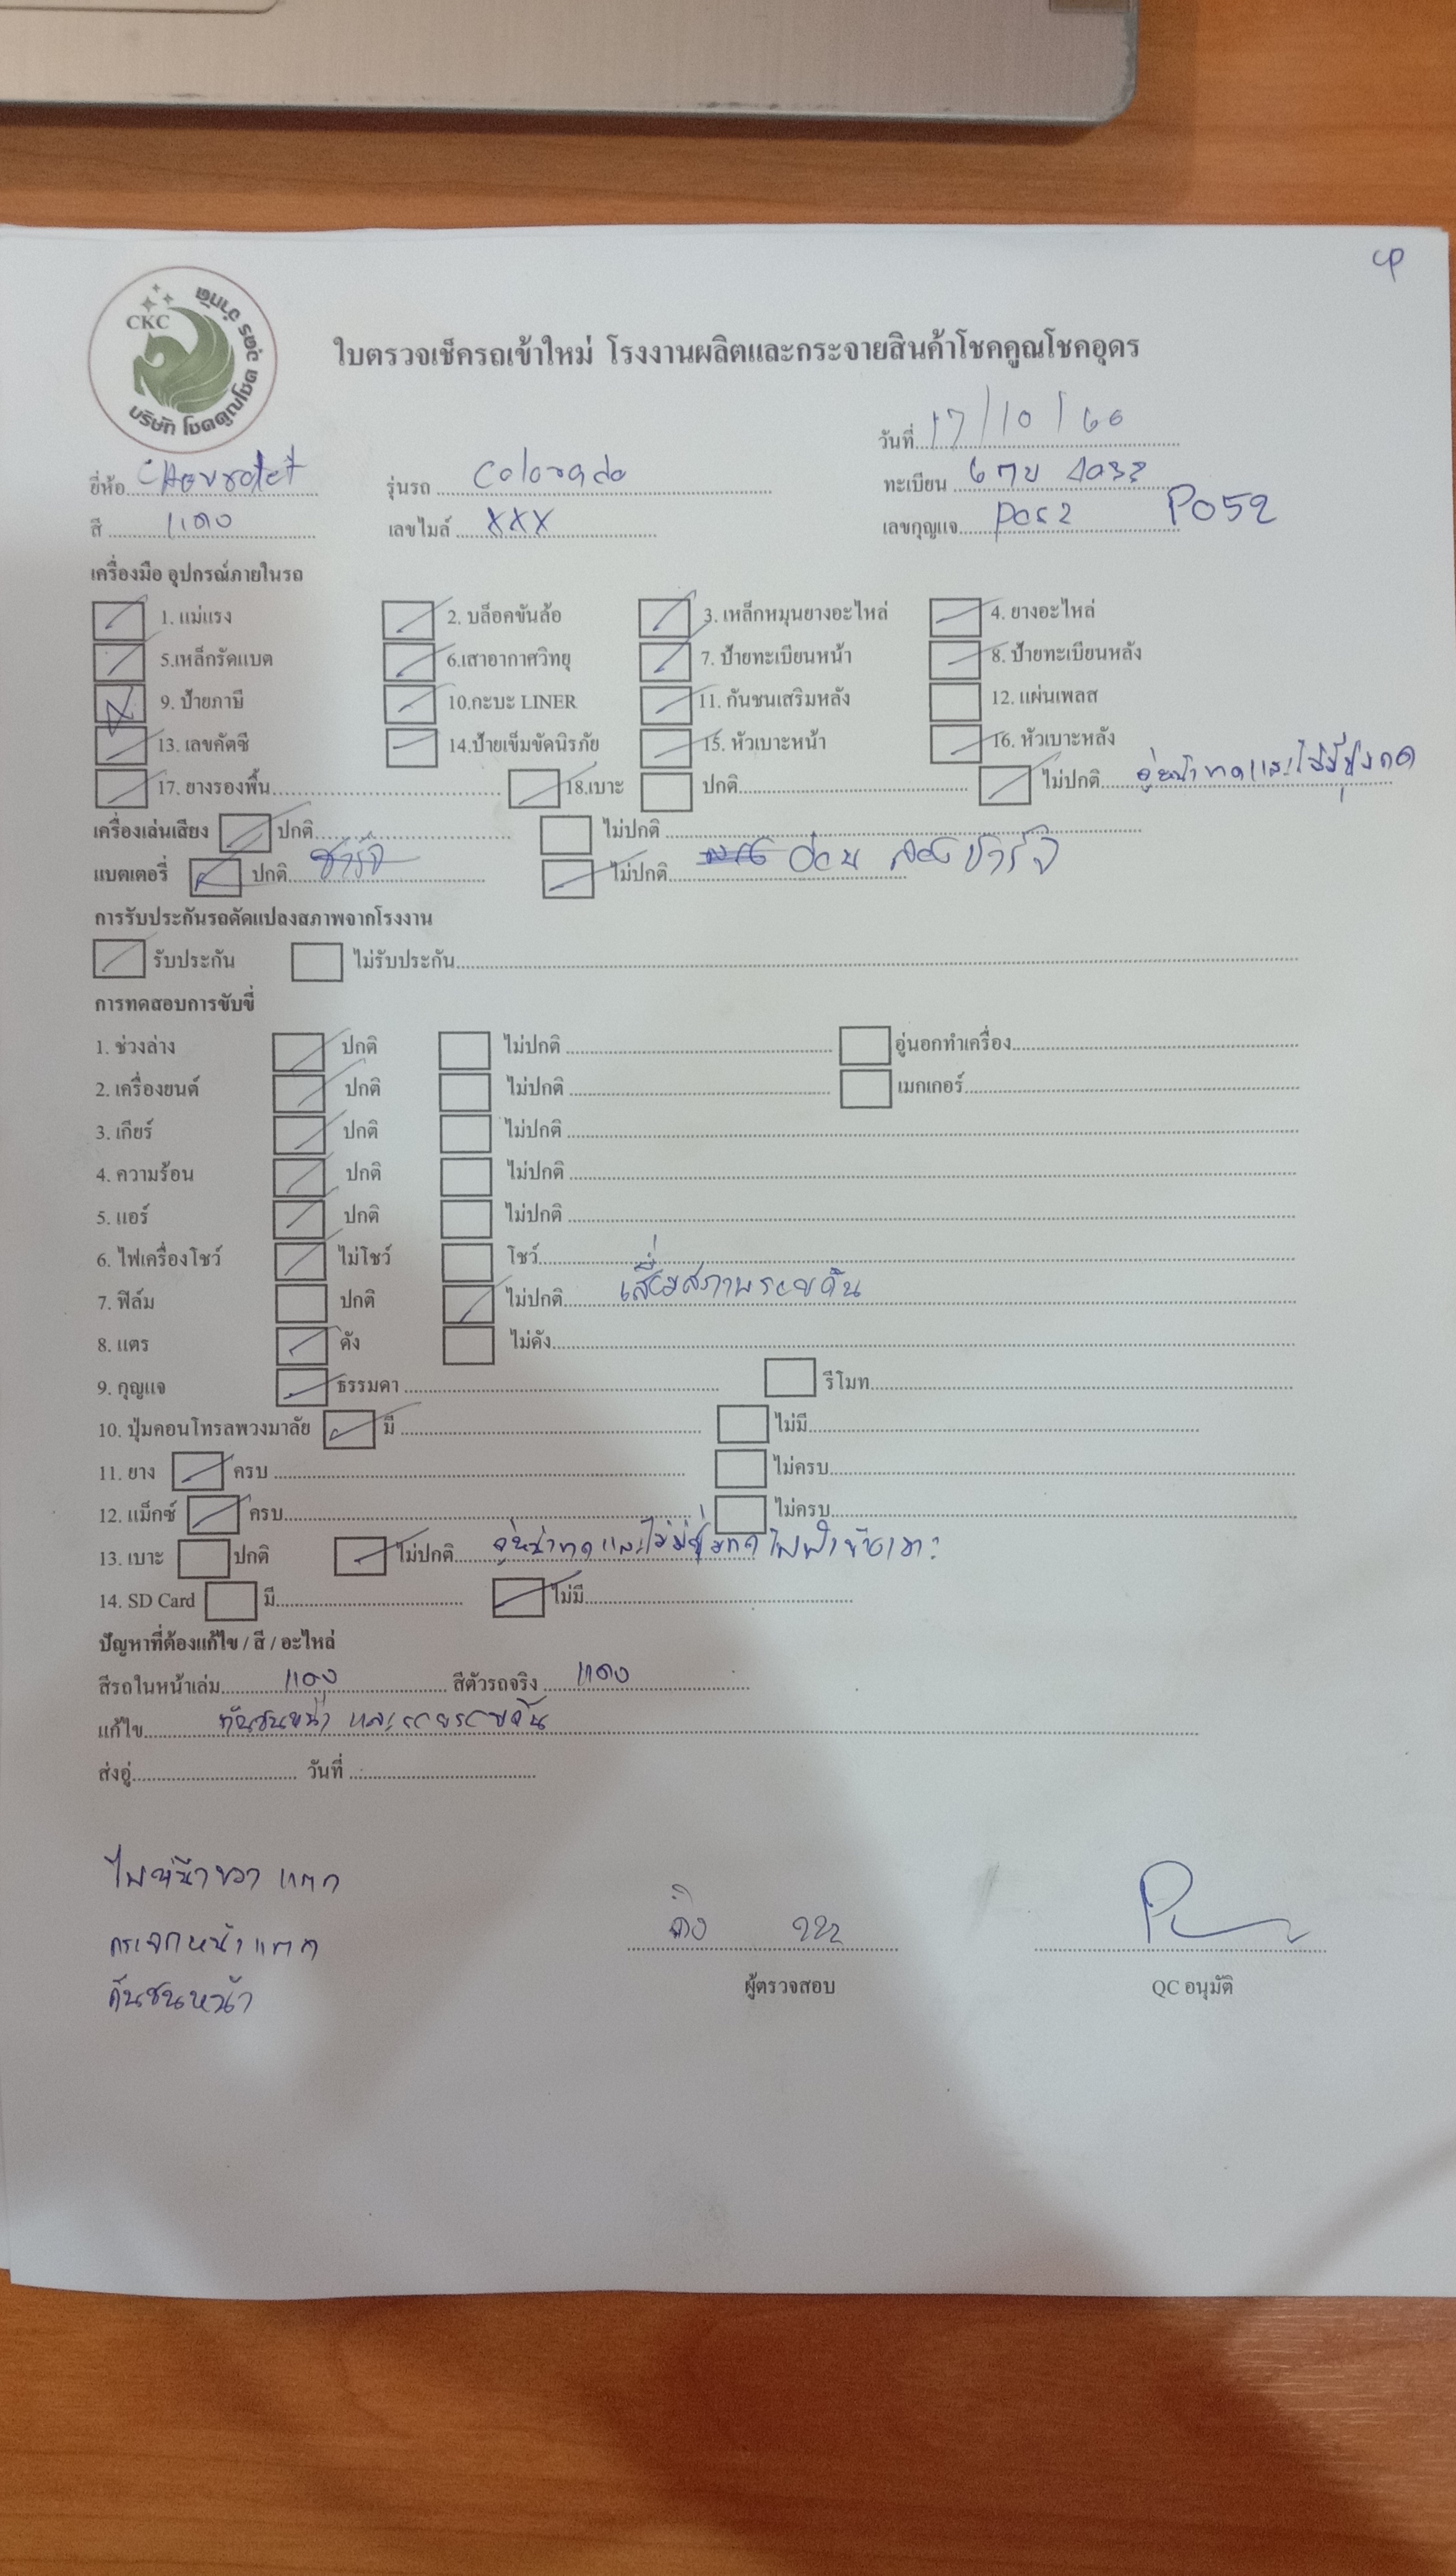 CKC
บริษัท โชคคูณโชค อุดร จำกัด
ใบตรวจเช็ครถเข้าใหม่ โรงงานผลิตและกระจายสินค้าโชคคูณโชคอุดร
วันที่ 17/10/66
ยี่ห้อ Chevrolet รุ่นรถ Colorado ทะเบียน
สี แดง เลขไมล์ XXX เลขกุญแจ P052 P052
เครื่องมือ อุปกรณ์ภายในรถ
1. แม่แรง 2. บล็อคขันล้อ 3. เหล็กหมุนยางอะไหล่ 4. ยางอะไหล่
5.เหล็กรัดแบต 6.เสาอากาศวิทยุ 7. ป้ายทะเบียนหน้า 8. ป้ายทะเบียนหลัง
9. ป้ายภาษี 10.กะบะ LINER 11. กันชนเสริมหลัง 12. แผ่นเพลส
13. เลขคัตซี 14.ป้ายเข็มขัดนิรภัย 15. หัวเบาะหน้า 16. หัวเบาะหลัง
17. ยางรองพื้น 18.เบาะ ปกติ ไม่ปกติ
เครื่องเล่นเสียง ปกติ ไม่ปกติ
แบตเตอรี่ ปกติ ชาร์จ ไม่ปกติ อ่อน ลองชาร์จ
การรับประกันรถดัดแปลงสภาพจากโรงงาน
รับประกัน ไม่รับประกัน
การทดสอบการขับขี่
1. ช่วงล่าง ปกติ ไม่ปกติ อู่นอกทำเครื่อง
2. เครื่องยนต์ ปกติ ไม่ปกติ เมกเกอร์
3. เกียร์ ปกติ ไม่ปกติ
4. ความร้อน ปกติ ไม่ปกติ
5. แอร์ ปกติ ไม่ปกติ
6. ไฟเครื่องโชว์ ไม่โชว์ โชว์
7. ฟิล์ม ปกติ ไม่ปกติ เสื่อมสภาพรอบคัน
8. แตร ดัง ไม่ดัง
9. กุญแจ ธรรมดา รีโมท
10. ปุ่มคอนโทรลพวงมาลัย มี ไม่มี
11. ยาง ครบ ไม่ครบ
12. แม็กซ์ ครบ ไม่ครบ
13. เบาะ ปกติ ไม่ปกติ
14. SD Card มี ไม่มี
ปัญหาที่ต้องแก้ไข / สี / อะไหล่
สีรถในหน้าเล่ม แดง สีตัวรถจริง แดง
แก้ไข กันชนหน้า และรอยรอบคัน
ส่งอู่ วันที่
ไฟหน้าขวา แตก
กระจกหน้าแตก
กันชนหน้า
ผู้ตรวจสอบ QC อนุมัติ